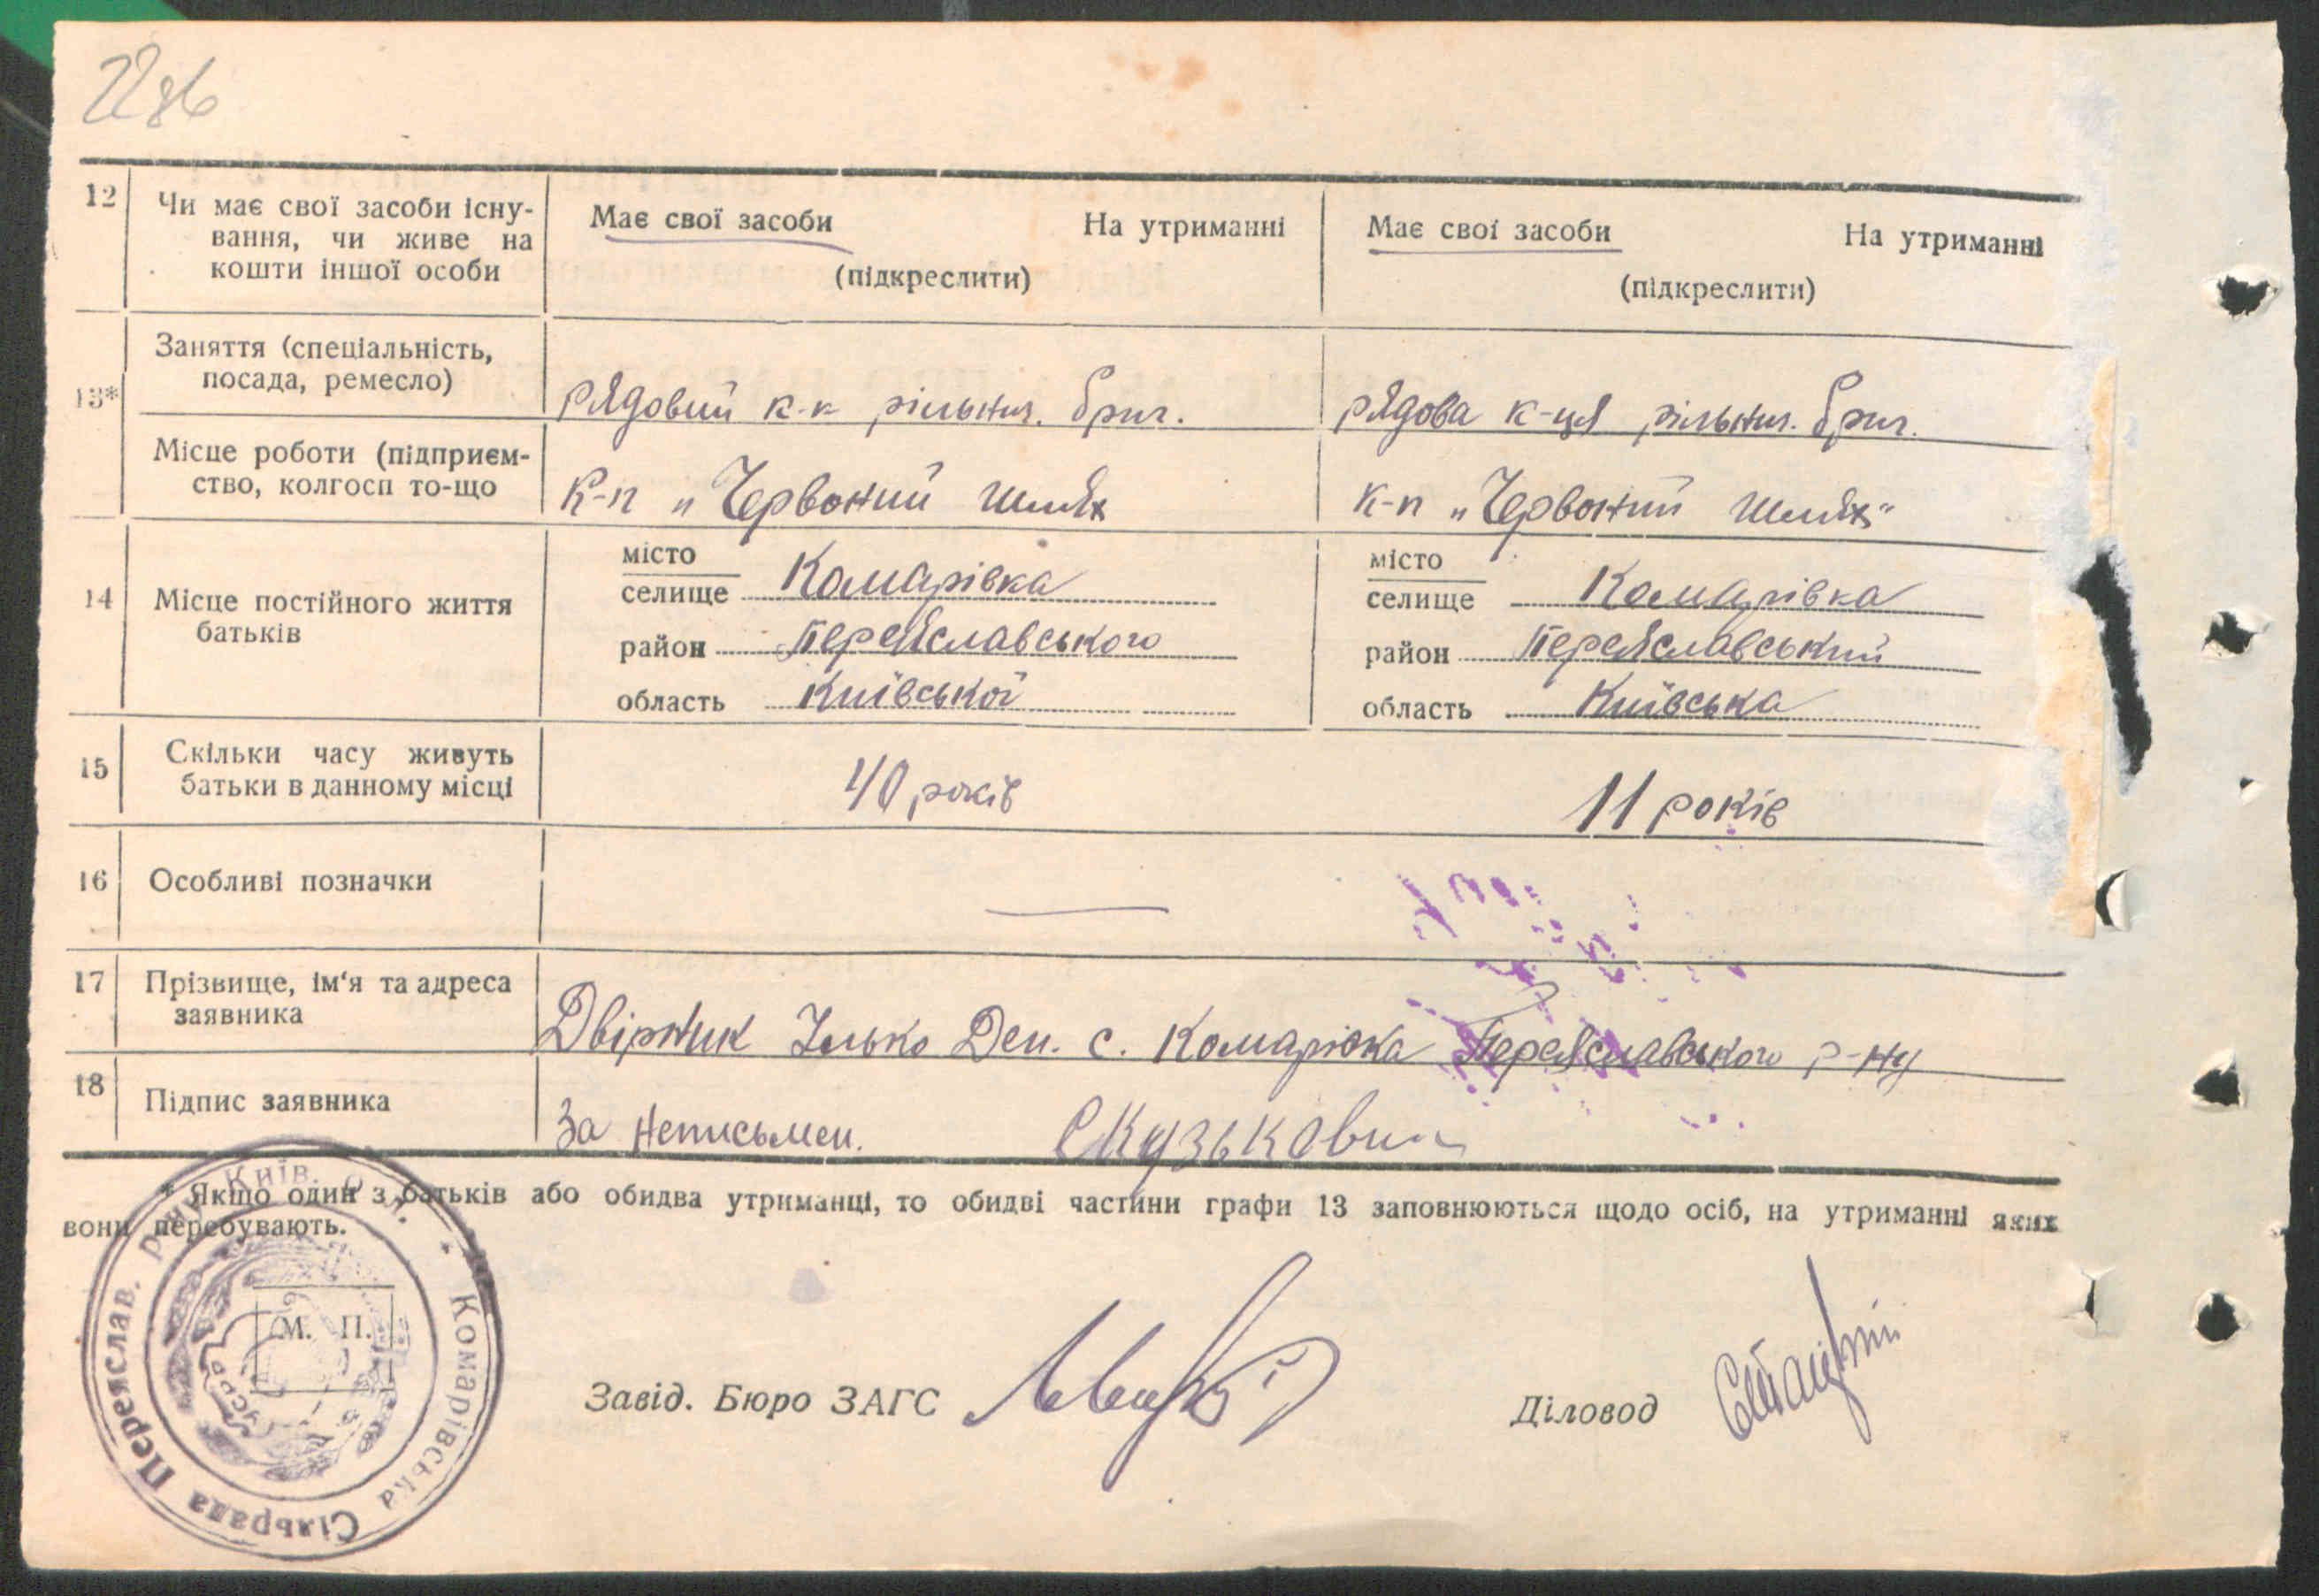 22зб
12 Чи має свої засоби існу-
вання, чи живе на
кошти іншої особи
Має свої засоби На утриманні
(підкреслити)
Має свої засоби На утриманні
(підкреслити)
13*
Заняття (спеціальність,
посада, ремесло)
рядовий к-к рільнич. бриг.
рядова к-ця рільнич. бриг.
Місце роботи (підприєм-
ство, колгосп то-що
К-п „Червоний шлях
К-п „Червоний шлях"
14 Місце постійного життя
батьків
місто
селище Комарівка
район Переяславського
область Київської
місто
селище Комарівка
район Переяславський
область Київська
15 Скільки часу живуть
батьки в данному місці
40 років
11 років
16 Особливі позначки
17 Прізвище, ім'я та адреса
заявника
Двірник Ілько Дем. с. Комарівка Переяславського р-ну
18 Підпис заявника
За неписьмен.
* Якщо один з батьків або обидва утриманці, то обидві частини графи 13 заповнюються щодо осіб, на утриманні яких
вони перебувають.
М. П.
Комарівська Сільрада Переяслав. р-ну Київ. обл.
УСРР
Завід. Бюро ЗАГС
Діловод